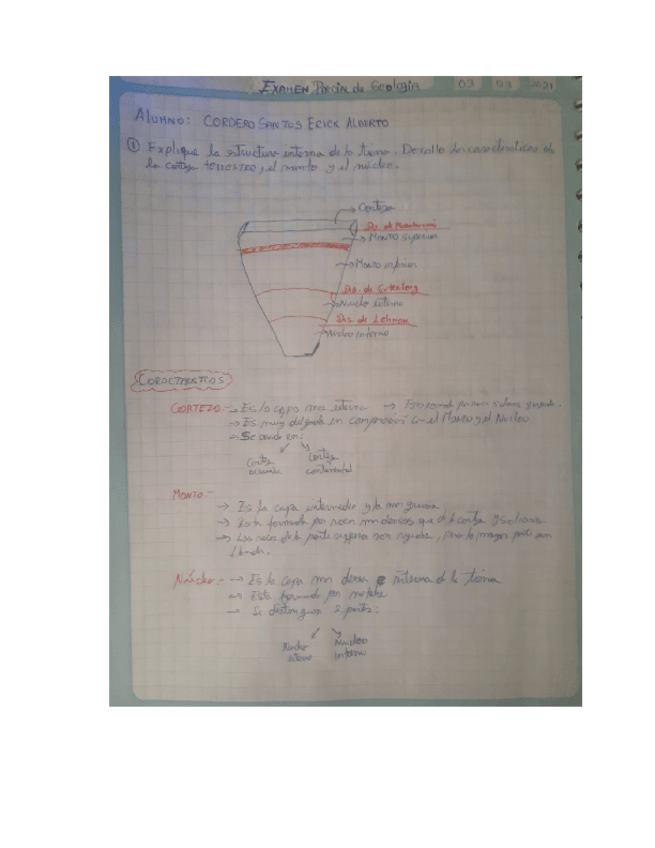 EXAMEN Parcial de Geología 03 03 2021
ALUMNO: CORDERO SANTOS ERICK ALBERTO
① Explique la estructura interna de la tierra. Detalle las características de
la corteza terrestre, el manto y el núcleo.
Corteza
Dis. de
Manto superior
Manto inferior
Dis. de Gutenberg
Núcleo externo
Dis. de Lehman
Núcleo interno
CARACTERÍSTICAS
CORTEZA.- → Es la capa mas externa →
→ Es muy delgada en comparación con el Manto y el Núcleo
→ Se divide en:
Corteza Corteza
oceanica continental
MANTO.-
→ Es la capa intermedia y la mas gruesa
→ Esta formada por rocas mas densas que de la corteza
→ Las rocas de la parte superior son rigidas, pero la mayor parte son
Núcleo.- → Es la capa mas densa e interna de la tierra
→ Esta formado por metales
→ Se distinguen 2 partes:
Núcleo Núcleo
externo interno